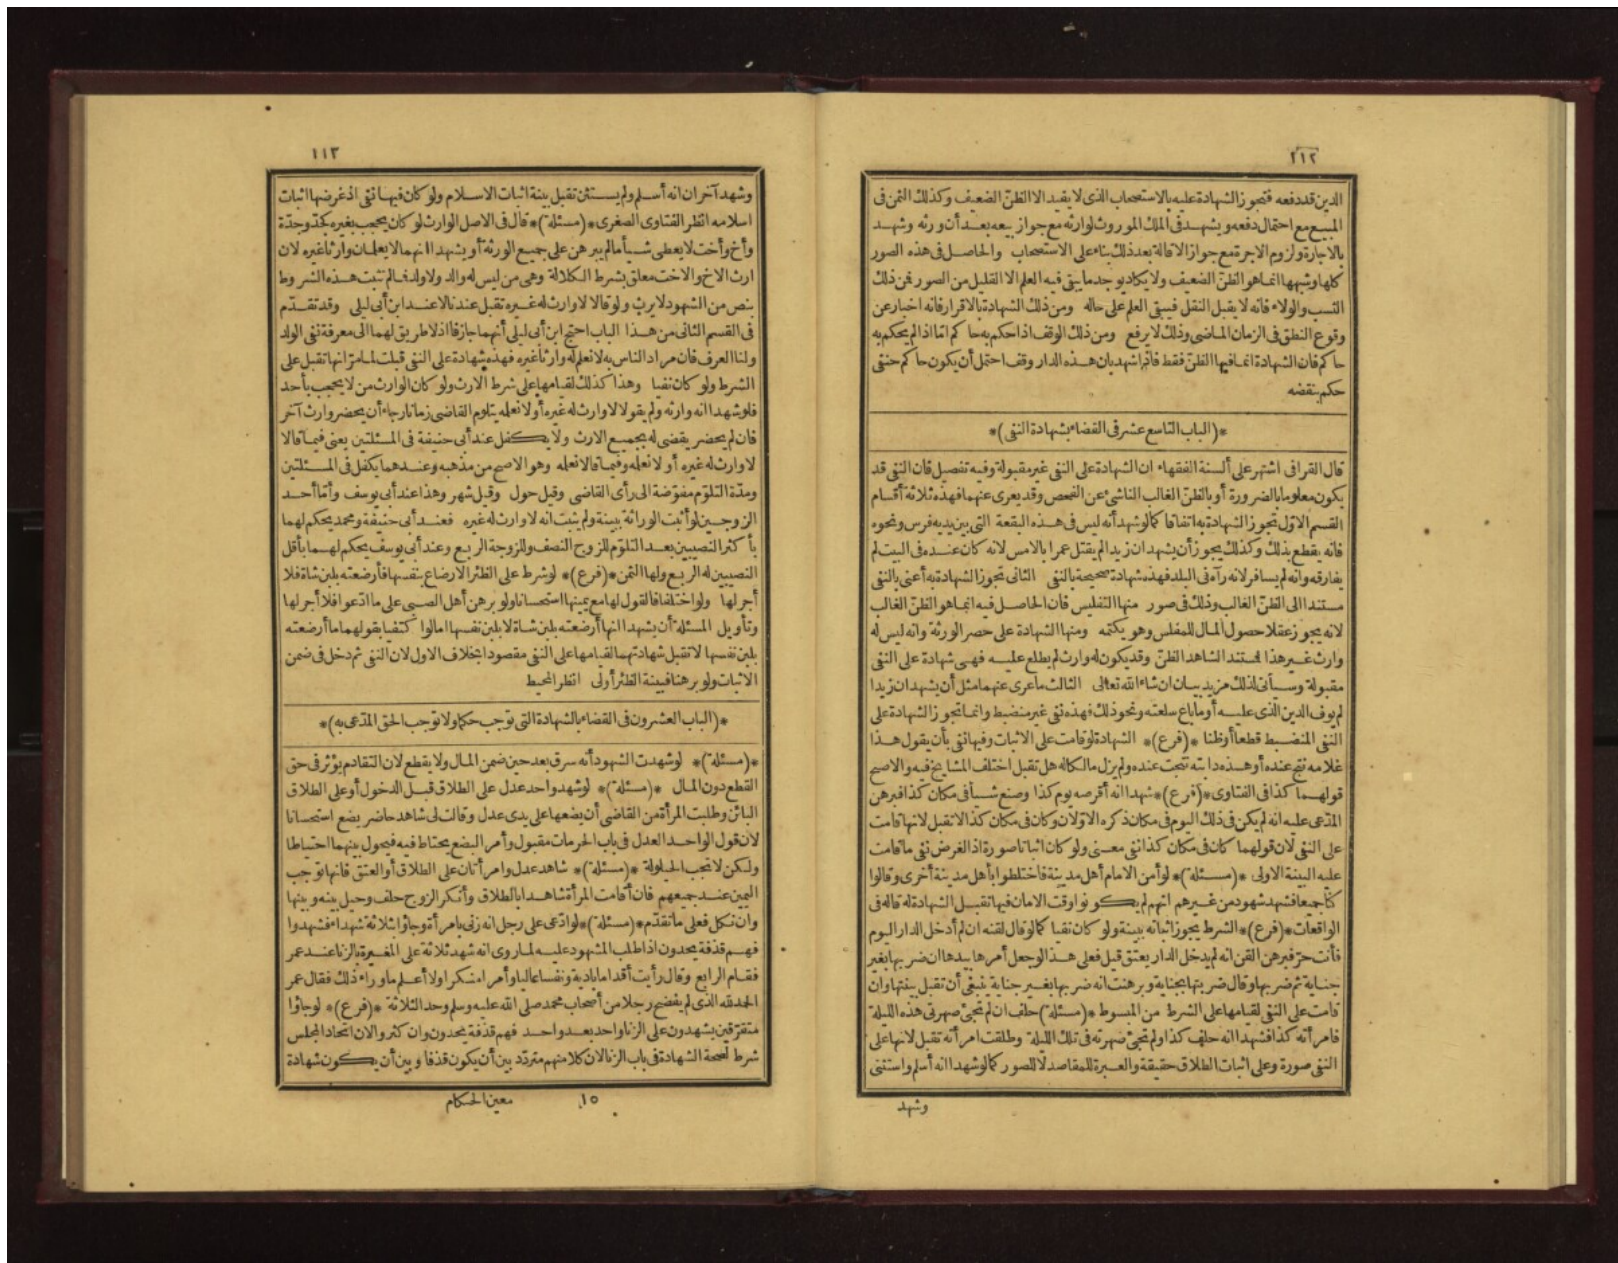 ١١٢
الدين قد دفعه فتجوز الشهادة عليه بالاستصحاب الذى لا يفيد الا الظنّ الضعيف وكذلك الثمن فى
المبيع مع احتمال دفعه ويشهد فى الملك الموروث لوارثه مع جواز بيعه بعد أن ورثه وشهد
بالاجارة ولزوم الاجرة مع جواز الاقالة بعد ذلك بناء على الاستصحاب والحاصل فى هذه الصور
كلها وشبهها انما هو الظنّ الضعيف ولا يكاد يوجد ما يبقى فيه العلم الا القليل من الصور فمن ذلك
النسب والولاء فانه لا يقبل النقل فيبقى العلم على حاله ومن ذلك الشهادة بالاقرار فانه اخبار عن
وقوع النطق فى الزمان الماضى وذلك لا يرفع ومن ذلك الوقف اذا حكم به حاكم اما اذا لم يحكم به
حاكم فان الشهادة انما فيها الظنّ فقط فاذا شهد بان هذه الدار وقف احتمل أن يكون حاكم حنفى
حكم بنقضه
*(الباب التاسع عشر فى القضاء بشهادة النفى)*
قال القرافى اشتهر على ألسنة الفقهاء ان الشهادة على النفى غير مقبولة وفيه تفصيل فان النفى قد
يكون معلوما بالضرورة أو بالظنّ الغالب الناشئ عن الفحص وقد يعرى عنهما فهذه ثلاثة أقسام
القسم الاوّل تجوز الشهادة به اتفاقا كما لو شهد أنه ليس فى هذه البقعة التى بين يديه فرس ونحوه
فانه يقطع بذلك وكذلك يجوز أن يشهد ان زيدا لم يقتل عمرا بالامس لانه كان عنده فى البيت لم
يفارقه وانه لم يسافر لانه رآه فى البلد فهذه شهادة صحيحة بالنفى الثانى تجوز الشهادة به أعنى بالنفى
مستندا الى الظنّ الغالب وذلك فى صور منها التفليس فان الحاصل فيه انما هو الظنّ الغالب
لانه يجوز عقلا حصول المال للمفلس وهو يكتمه ومنها الشهادة على حصر الورثة وانه ليس له
وارث غير هذا فمستند الشاهد الظنّ وقد يكون له وارث لم يطلع عليه فهى شهادة على النفى
مقبولة وسيأتى لذلك مزيد بيان ان شاء الله تعالى الثالث ما عرى عنهما مثل أن يشهد ان زيدا
لم يوف الدين الذى عليه أو ما باع سلعته ونحو ذلك فهذه نفى غير منضبط وانما تجوز الشهادة على
النفى المنضبط قطعا أو ظنا *(فرع)* الشهادة لو قامت على الاثبات وفيها نفى بأن يقول هذا
غلامه نتج عنده أو هذه دابته نتجت عنده ولم يزل مالكا له هل تقبل اختلف المشايخ فيه والاصح
قولهما كذا فى الفتاوى *(فرع)* شهدا انه أقرضه يوم كذا وصنع شيأ فى مكان كذا فبرهن
المدّعى عليه انه لم يكن فى ذلك اليوم فى مكان ذكره الاوّلان وكان فى مكان كذا لا تقبل لانها قامت
على النفى لان قولهما كان فى مكان كذا نفى معنى ولو كان اثباتا صورة اذ الغرض نفى ما قامت
عليه البينة الاولى *(مسئلة)* لو أمن الامام أهل مدينة فاختلطوا بأهل مدينة أخرى وقالوا
كنا جميعا فشهد شهود من غيرهم انهم لم يكونوا وقت الامان فيها تقبل الشهادة له قاله فى
الواقعات *(فرع)* الشرط يجوز اثباته ببينة ولو كان نفيا كما لو قال لقنه ان لم أدخل الدار اليوم
فأنت حرّ فبرهن القن انه لم يدخل الدار يعتق قيل فعلى هذا لو جعل أمرها بيدها ان ضربها بغير
جناية ثم ضربها وقال ضربتها بجناية وبرهنت انه ضربها بغير جناية ينبغى أن تقبل بينتها وان
قامت على النفى لقيامها على الشرط من المبسوط *(مسئلة)* حلف ان لم تجئ صهرتى هذه الليلة
فامرأته كذا فشهدا انه حلف كذا ولم تجئ صهرته فى تلك الليلة وطلقت امرأته تقبل لانها على
النفى صورة وعلى اثبات الطلاق حقيقة والعبرة للمقاصد لا للصور كما لو شهدا انه أسلم واستثنى
وشهد
١١٣
وشهد آخران انه أسلم ولم يستثن تقبل بينة اثبات الاسلام ولو كان فيها نفى اذ غرضها اثبات
اسلامه انظر الفتاوى الصغرى *(مسئلة)* قال فى الاصل الوارث لو كان يحجب بغيره كجدّ وجدّة
وأخ وأخت لا يعطى شيأ ما لم يبرهن على جميع الورثة أو يشهدا انهما لا يعلمان وارثا غيره لان
ارث الاخ والاخت معلق بشرط الكلالة وهى من ليس له والد ولا ولد فما لم تثبت هذه الشروط
بنص من الشهود لا يرث ولو قالا لا وارث له غيره تقبل عندنا لا عند ابن أبى ليلى وقد تقدّم
فى القسم الثانى من هذا الباب احتج ابن أبى ليلى أنهما جازفا اذ لا طريق لهما الى معرفة نفى الولد
ولنا العرف فان مراد الناس به لا نعلم له وارثا غيره فهذه شهادة على النفى قبلت لما مرّ انها تقبل على
الشرط ولو كان نفيا وهذا كذلك لقيامها على شرط الارث ولو كان الوارث من لا يحجب بأحد
فلو شهدا انه وارثه ولم يقولا لا وارث له غيره أو لا نعلمه يتلوم القاضى زمانا رجاء أن يحضر وارث آخر
فان لم يحضر يقضى له بجميع الارث ولا يكفل عند أبى حنيفة فى المسئلتين يعنى فيما قالا
لا وارث له غيره أو لا نعلمه وفيما قالا نعلمه وهو الاصح من مذهبه وعندهما يكفل فى المسئلتين
ومدّة التلوّم مفوّضة الى رأى القاضى وقيل حول وقيل شهر وهذا عند أبى يوسف وأمّا أحد
الزوجين لو أثبت الوراثة ببينة ولم يثبت انه لا وارث له غيره فعند أبى حنيفة ومحمد يحكم لهما
بأكثر النصيبين بعد التلوّم للزوج النصف وللزوجة الربع وعند أبى يوسف يحكم لهما بأقل
النصيبين له الربع ولها الثمن *(فرع)* لو شرط على الظئر الارضاع بنفسها فأرضعته بلبن شاة فلا
أجر لها ولو اختلفا فالقول لها مع يمينها استحسانا ولو برهن أهل الصبى على ما ادّعوا فلا أجر لها
وتأويل المسئلة أن يشهدا انها أرضعته بلبن شاة لا بلبن نفسها امالو اكتفيا بقولهما ما أرضعته
بلبن نفسها لا تقبل شهادتهما لقيامها على النفى مقصودا بخلاف الاول لان النفى ثم دخل فى ضمن
الاثبات ولو برهنا فبينة الظئر أولى انظر المحيط
*(الباب العشرون فى القضاء بالشهادة التى توجب حكما ولا توجب الحق المدّعى به)*
*(مسئلة)* لو شهدت الشهود أنه سرق بعد حين ضمن المال ولا يقطع لان التقادم يؤثر فى حق
القطع دون المال *(مسئلة)* لو شهد واحد عدل على الطلاق قبل الدخول أو على الطلاق
البائن وطلبت المرأة من القاضى أن يضعها على يدى عدل وقالت لى شاهد حاضر يضع استحسانا
لان قول الواحد العدل فى باب الحرمات مقبول وأمر البضع يحتاط فيه فيحول بينهما احتياطا
ولكن لا تجب الحيلولة *(مسئلة)* شاهد عدل وامرأتان على الطلاق أو العتق فانها توجب
اليمين عند جميعهم فان أقامت المرأة شاهدا بالطلاق وأنكر الزوج حلف وحيل بينه وبينها
وان نكل فعلى ما تقدّم *(مسئلة)* لو ادّعى على رجل انه زنى بامرأة وجاؤا بثلاثة شهداء فشهدوا
فهم قذفة يحدون اذا طلب المشهود عليه لما روى انه شهد ثلاثة على المغيرة بالزنا عند عمر
فقام الرابع وقال رأيت أقداما بادية ونفسا عاليا وأمرا منكرا ولا أعلم ما وراء ذلك فقال عمر
الحمد لله الذى لم يفضح رجلا من أصحاب محمد صلى الله عليه وسلم وحد الثلاثة *(فرع)* لو جاؤا
متفرّقين يشهدون على الزنا واحد بعد واحد فهم قذفة يحدون وان كثروا لان اتحاد المجلس
شرط لصحة الشهادة فى باب الزنا لان كلامهم متردّد بين أن يكون قذفا وبين أن يكون شهادة
١٥ معين الحكام